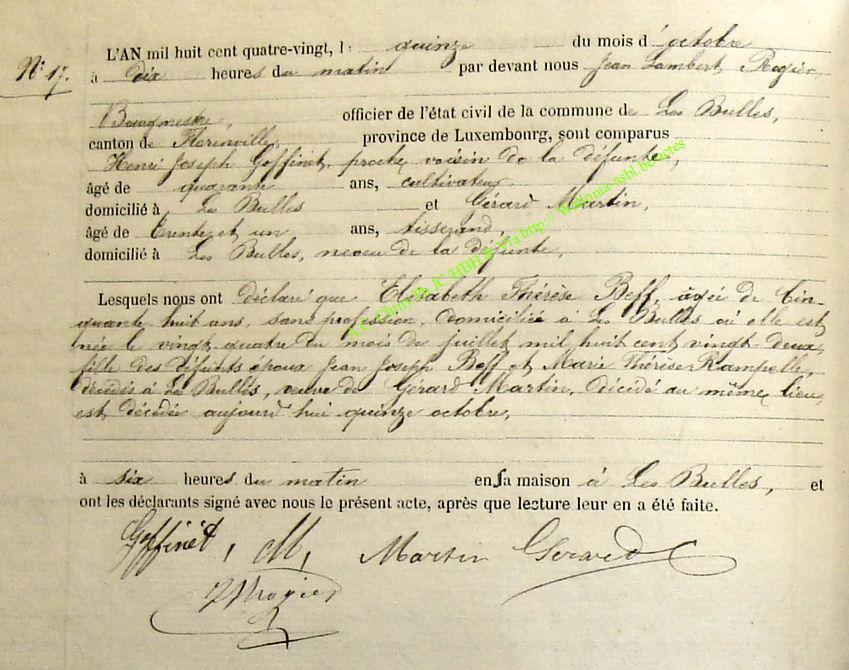 N° 17.
L'AN mil huit cent quatre-vingt, l quinze du mois d'octobre
à dix heures du matin par devant nous Jean Lambert Rogier,
Bourgmestre, officier de l'état civil de la commune de Les Bulles,
canton de Florenville, province de Luxembourg, sont comparus
Henri Joseph Goffinet, proche voisin de la défunte,
âgé de quarante ans, cultivateur,
domicilié à Les Bulles et Gérard Martin,
âgé de trente et un ans, tisserand,
domicilié à Les Bulles, neveu de la défunte,
Lesquels nous ont déclaré que Elisabeth Thérèse Beff, agée de cin-
quante huit ans, sans profession, domiciliée à Les Bulles où elle est
née le vingt quatre du mois de juillet mil huit cent vingt-deux,
fille des défunts époux Jean Joseph Beff et Marie Thérèse Rampelle,
décédés à Les Bulles, veuve de Gérard Martin, décédé au même lieu,
est décédée aujourd'hui quinze octobre,
à six heures du matin en sa maison à Les Bulles, et
ont les déclarants signé avec nous le présent acte, après que lecture leur en a été faite.
Goffinet, M, Martin Gerard
Rogier